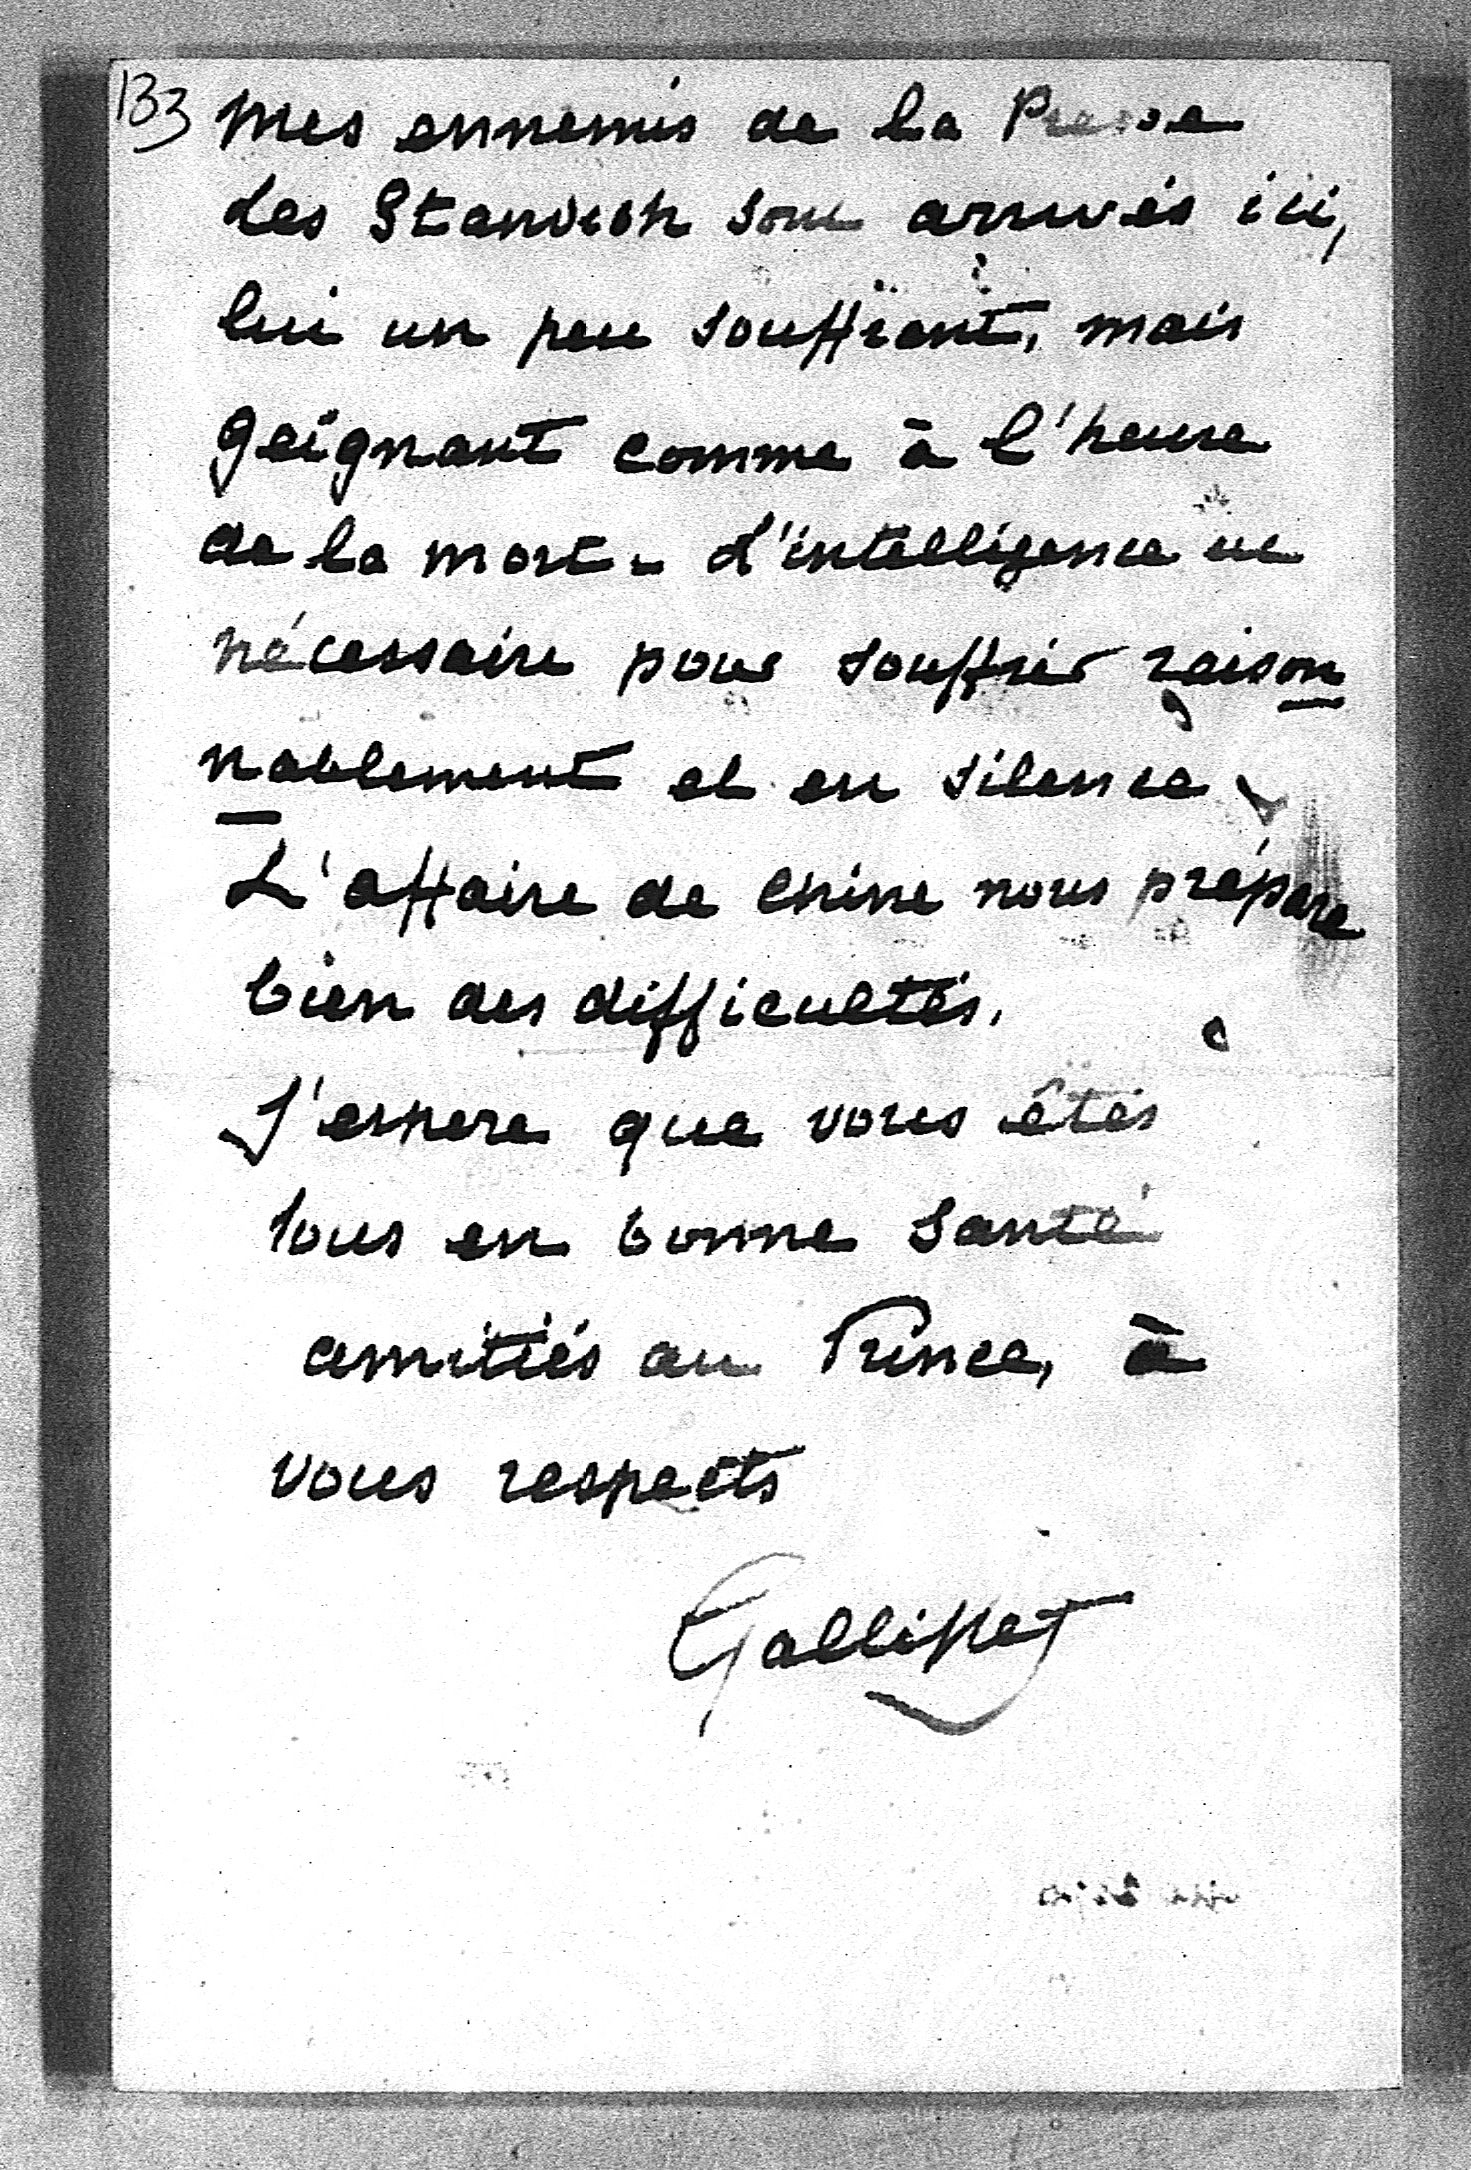 133
Mes ennemis de la Presse
Les Standish sont arrivés ici,
lui un peu souffrant, mais
geignant comme à l'heure
de la mort - L'intelligence est
nécessaire pour souffrir raison
nablement et en silence
L'affaire de Chine nous prépare
bien des difficultés.
J'espere que vous êtes
tous en bonne santé
amitiés au Prince, à
vous respects
Galliffet